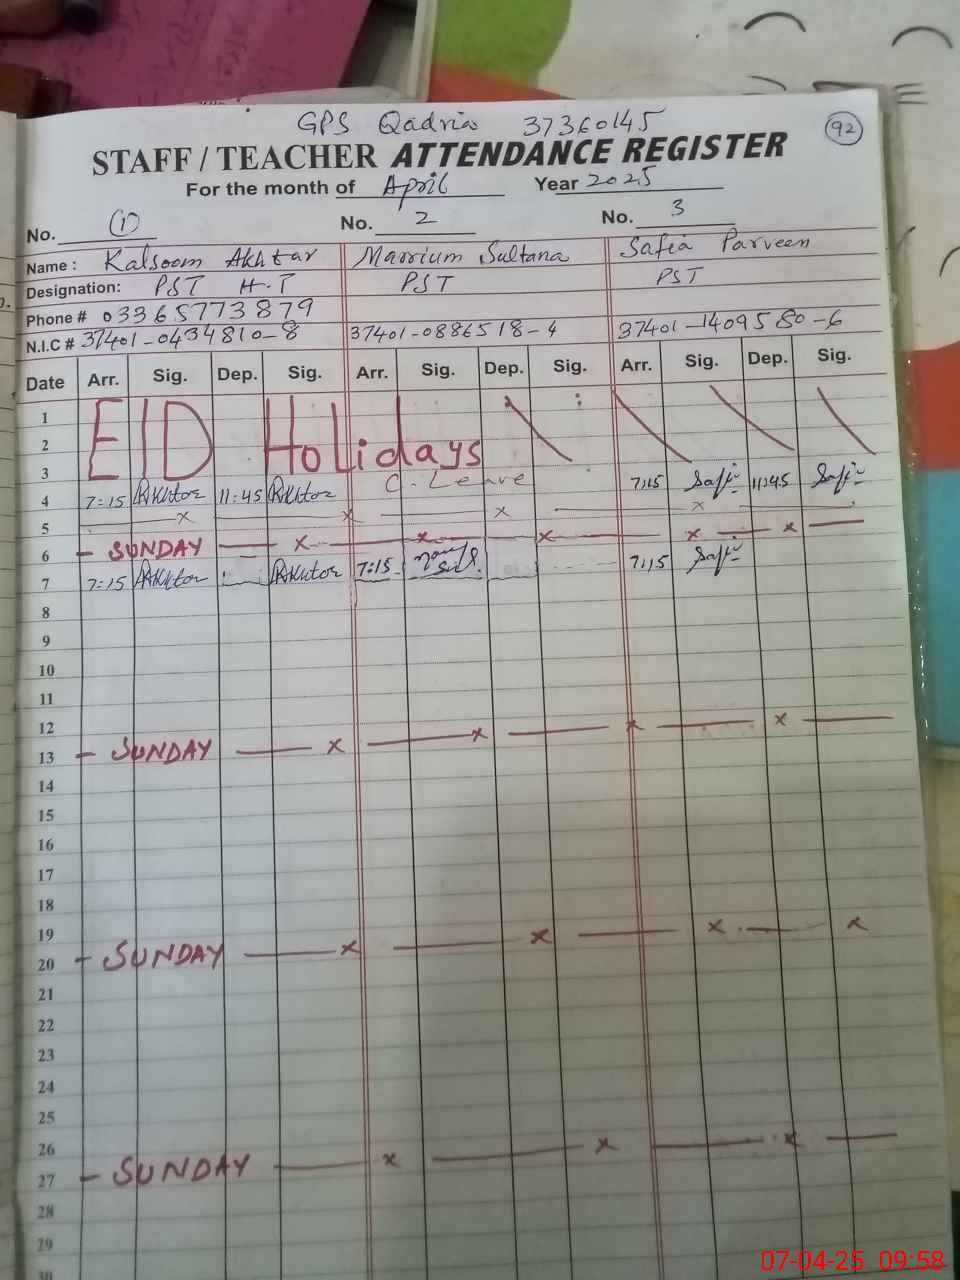 GPS Qadria 37360145
92
STAFF / TEACHER ATTENDANCE REGISTER
For the month of April Year 2025
No. 1 No. 2 No. 3
Name : Kalsoom Akhtar Marrium Sultana Safia Parveen
Designation: PST H.T PST PST
Phone # 03365773879
N.I.C # 37401-0434810-8 37401-0886518-4 37401-1409580-6
Date Arr. Sig. Dep. Sig. Arr. Sig. Dep. Sig. Arr. Sig. Dep. Sig.
1
2 EID Holidays
3
4 7:15 Akhtar 11:45 Akhtar C. Leave 7:15 Safi 11:45 Safi
5 x x x x
6 - SUNDAY x x x x x
7 7:15 Akhtar Akhtar 7:15 7:15 Safi
8
9
10
11
12
13 - SUNDAY x x x x
14
15
16
17
18
19
20 - SUNDAY x x x x
21
22
23
24
25
26
27 - SUNDAY x x x
28
29
30
07-04-25 09:58